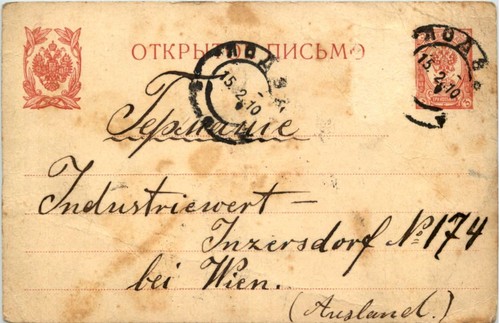 ОТКРЫТОЕ ПИСЬМО
ЛОДЗЬ
15.2.10
ЛОДЗЬ
15.2.10
Германіе
Industriewert-
Inzersdorf № 174
bei Wien.
(Ausland.)